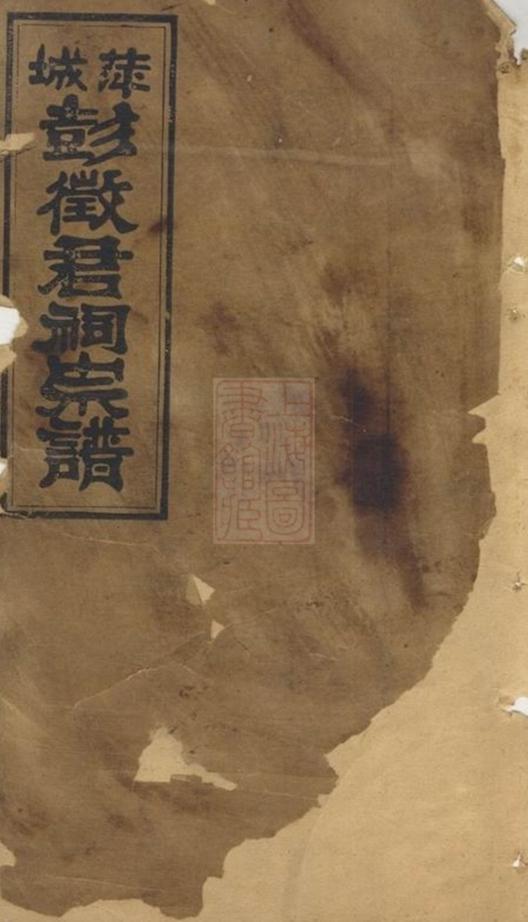 萍城
彭徵君祠宗譜
上海圖書館藏